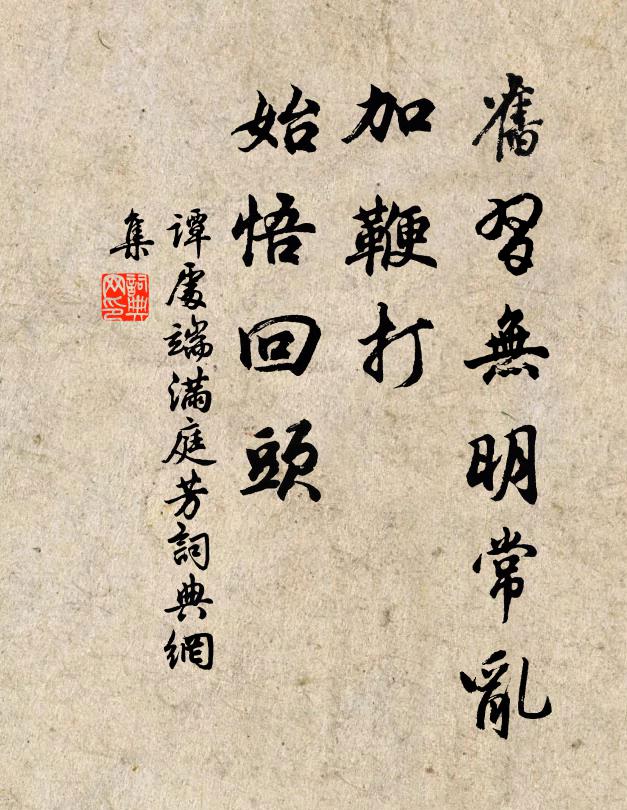 舊習無明常亂
加鞭打
始悟回頭
譚處端滿庭芳詞典網
集
詞典网印